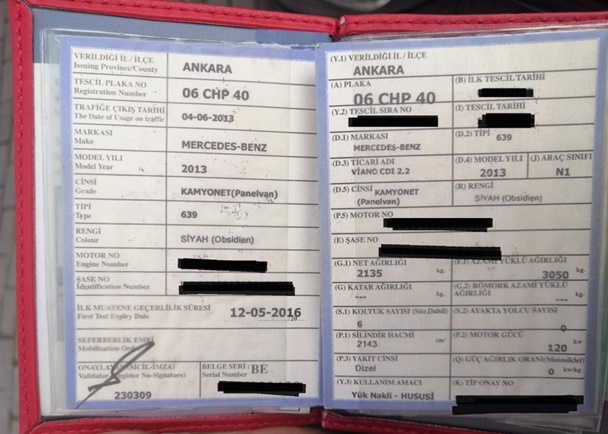 VERİLDİĞİ İL / İLÇE
Issuing Province/County
ANKARA
TESCİL PLAKA NO
Registration Number
06 CHP 40
TRAFİĞE ÇIKIŞ TARİHİ
The Date of Usage on traffic
04-06-2013
MARKASI
Make
MERCEDES-BENZ
MODEL YILI
Model Year
2013
CİNSİ
Grade
KAMYONET(Panelvan)
TİPİ
Type
639
RENGİ
Colour
SİYAH (Obsidien)
MOTOR NO
Engine Number
ŞASE NO
Identification Number
İLK MUAYENE GEÇERLİLİK SÜRESİ
First Test Expiry Date
12-05-2016
SEFERBERLİK EMRİ
Mobilization Order
ONAYLAYAN (SİCİL-İMZA)
Validator (Register No-Signature)
230309
BELGE SERİ : BE
Serial Number
(Y.1) VERİLDİĞİ İL / İLÇE
ANKARA
(A) PLAKA
06 CHP 40
(B) İLK TESCİL TARİHİ
(Y.2) TESCİL SIRA NO
(I) TESCİL TARİHİ
(D.1) MARKASI
MERCEDES-BENZ
(D.2) TİPİ
639
(D.3) TİCARİ ADI
VİANO CDI 2.2
(D.4) MODEL YILI
2013
(J) ARAÇ SINIFI
N1
(D.5) CİNSİ
KAMYONET
(Panelvan)
(R) RENGİ
SİYAH (Obsidien)
(P.5) MOTOR NO
(E) ŞASE NO
(G.1) NET AĞIRLIĞI
2135
kg.
(F.1) AZAMİ YÜKLÜ
AĞIRLIĞI
3050
kg.
(G) KATAR AĞIRLIĞI
---
kg.
(G.2) RÖMORK AZAMİ YÜKLÜ
AĞIRLIĞI
---
kg.
(S.1) KOLTUK SAYISI (Sür.Dahil)
6
(S.2) AYAKTA YOLCU SAYISI
0
(P.1) SİLİNDİR HACMİ
2143
cm³
(P.2) MOTOR GÜCÜ
120
kw
(P.3) YAKIT CİNSİ
Dizel
(Q) GÜÇ AĞIRLIK ORANI(Motosiklet)
0
kw/kg
(Y.3) KULLANIM AMACI
Yük Nakli - HUSUSİ
(K) TİP ONAY NO